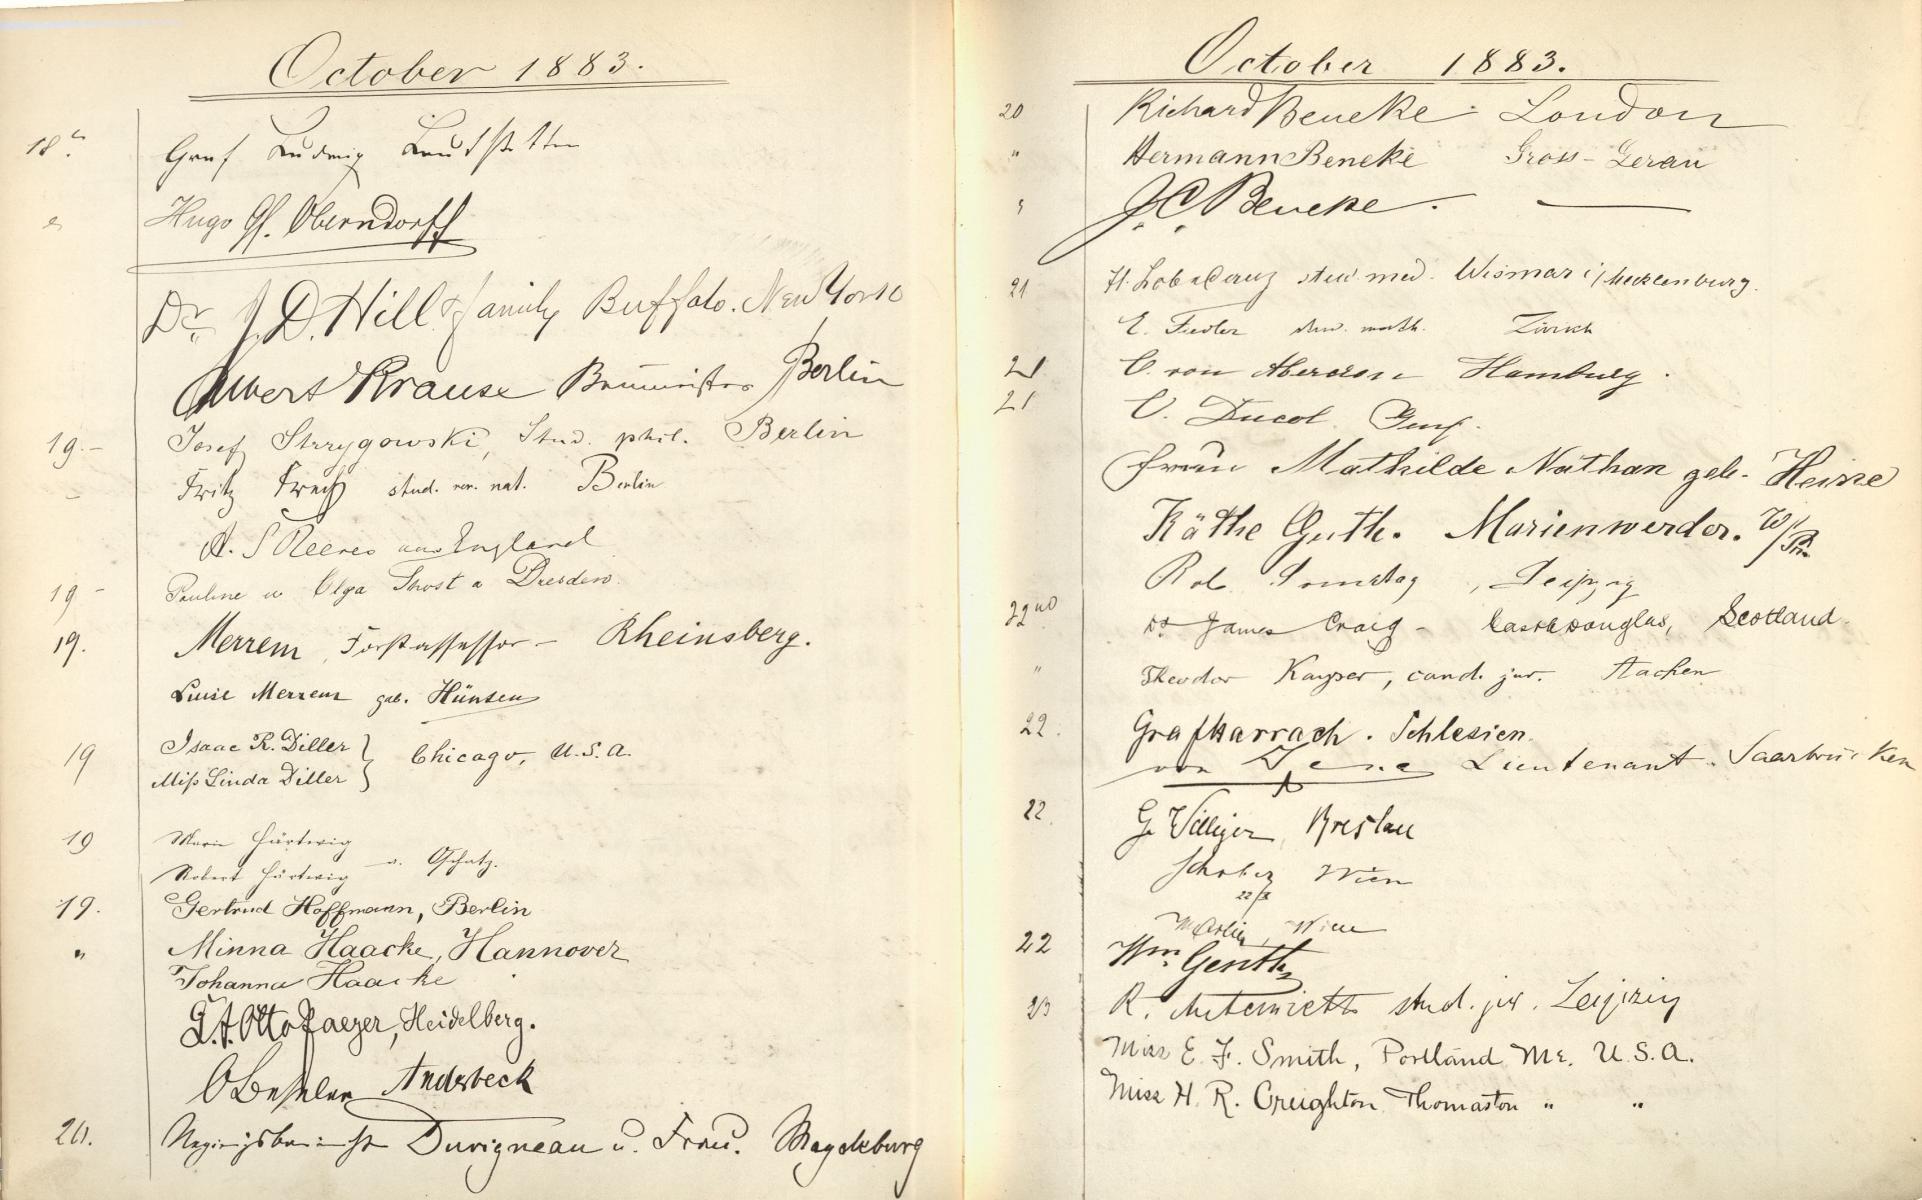 October 1883.
18.
Graf Ludwig
Hugo Gf. Oberndorff
Dr. J. D. Hill & family Buffalo. New York
Albert Krause Baumeister Berlin
19.- Josef Strzygowski, Stud. phil. Berlin
Fritz Frech stud. rer. nat. Berlin
A. S Reeves aus England
19 - Pauline u Olga Trost a Dresden.
19. Merrem, Forstassessor - Rheinsberg.
Luise Merrem geb. Hünsen
19 Isaac R. Diller
Miss Linda Diller } Chicago, U.S.A.
19 Marie Härtwig
Robert Härtwig a. Oschatz.
19. Gertrud Hoffmann, Berlin
" Minna Haacke, Hannover
Johanna Haacke
Otto Jaeger, Heidelberg.
Andesbeck
20. Duvigneau u. Frau. Magdeburg
October 1883.
20 Richard Beneke London
" Hermann Beneke Gross-Gerau
J.C. Beneke.
21 stud med. Wismar i/Mecklenburg.
E. Fiedler stud. math. Zürich
21 C. von Hamburg.
21 Ducol Genf.
Frau Mathilde Nathan geb. Heine
Käthe Guth. Marienwerder. W/Pr.
Rob. Leipzig
22nd Dr James Craig - Castle Douglas, Scotland.
" Theodor Kayser, cand. jur. Aachen
22. Graf Harrach. Schlesien.
von Lieutenant. Saarbrücken
22. G. Villiger, Breslau
Schober Wien
22/X
Wien
22 Wm. Genth
23 R. stud. jur. Leipzig
Miss E. F. Smith, Portland Me. U.S.A.
Miss H. R. Creighton Thomaston " "